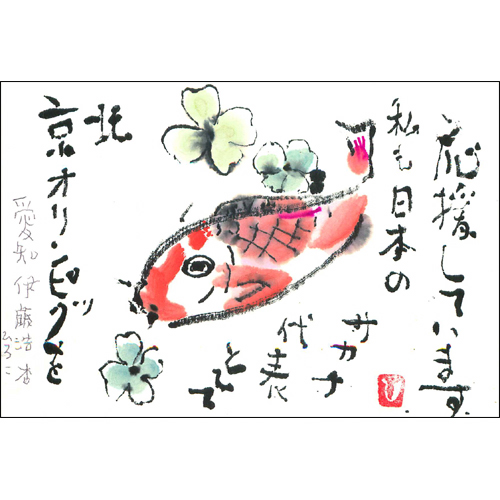 応援しています。
私も日本の
サカナ
代表
として
北
京オリンピックを
愛知 伊藤
ひろこ